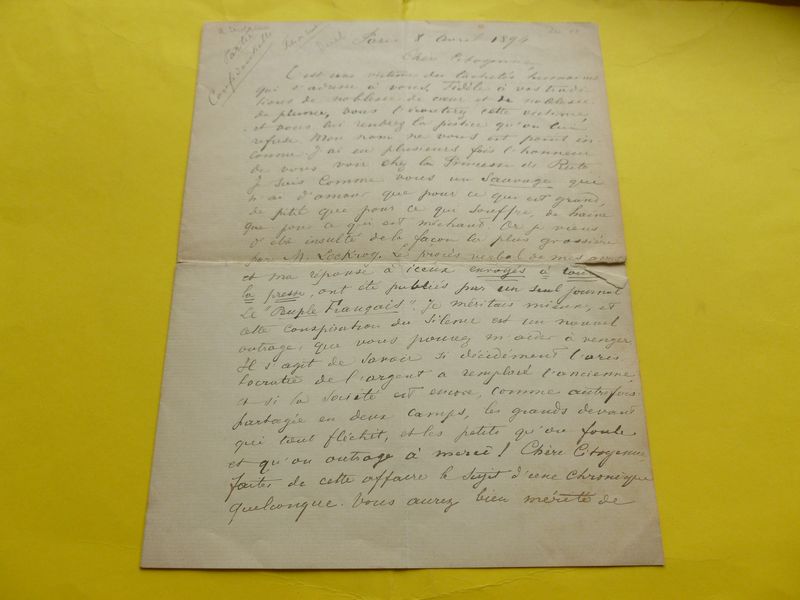 Partie
Confidentielle
Duel
Paris 8 avril 1894
Chère Citoyenne,
C'est une victime des lachetés humaines
qui s'adresse à vous. Fidèle à vos tradi
tions de noblesse de cœur et de noblesse
de plume, vous l'écouterez cette victime
et vous lui rendrez la justice qu'on lui
refuse. Mon nom ne vous est point in
connu. J'ai eu plusieurs fois l'honneur
de vous voir chez la Princesse de Rute
Je suis comme vous un sauvage qui
n'ai d'amour que pour ce qui est grand,
de pitié que pour ce qui souffre, de haine
que pour ce qui est méchant. Or je viens
d'être insulté de la façon la plus grossière
par M. Lockroy. Les procès verbal de mes amis
et ma réponse à iceux envoyés à toute
la presse, ont été publiés par un seul journal
Le "Peuple Français". Je méritais mieux, et
cette conspiration du silence est un nouvel
outrage, que vous pouvez m'aider à venger.
Il s'agit de savoir si décidément l'aris
tocratie de l'argent a remplacé l'ancienne
et si la société est encore, comme autrefois
partagée en deux camps, les grands devant
qui tout fléchit, et les petits qu'on foule
et qu'on outrage à merci! Chère Citoyenne
faites de cette affaire le sujet d'une chronique
quelconque. Vous aurez bien mérité de